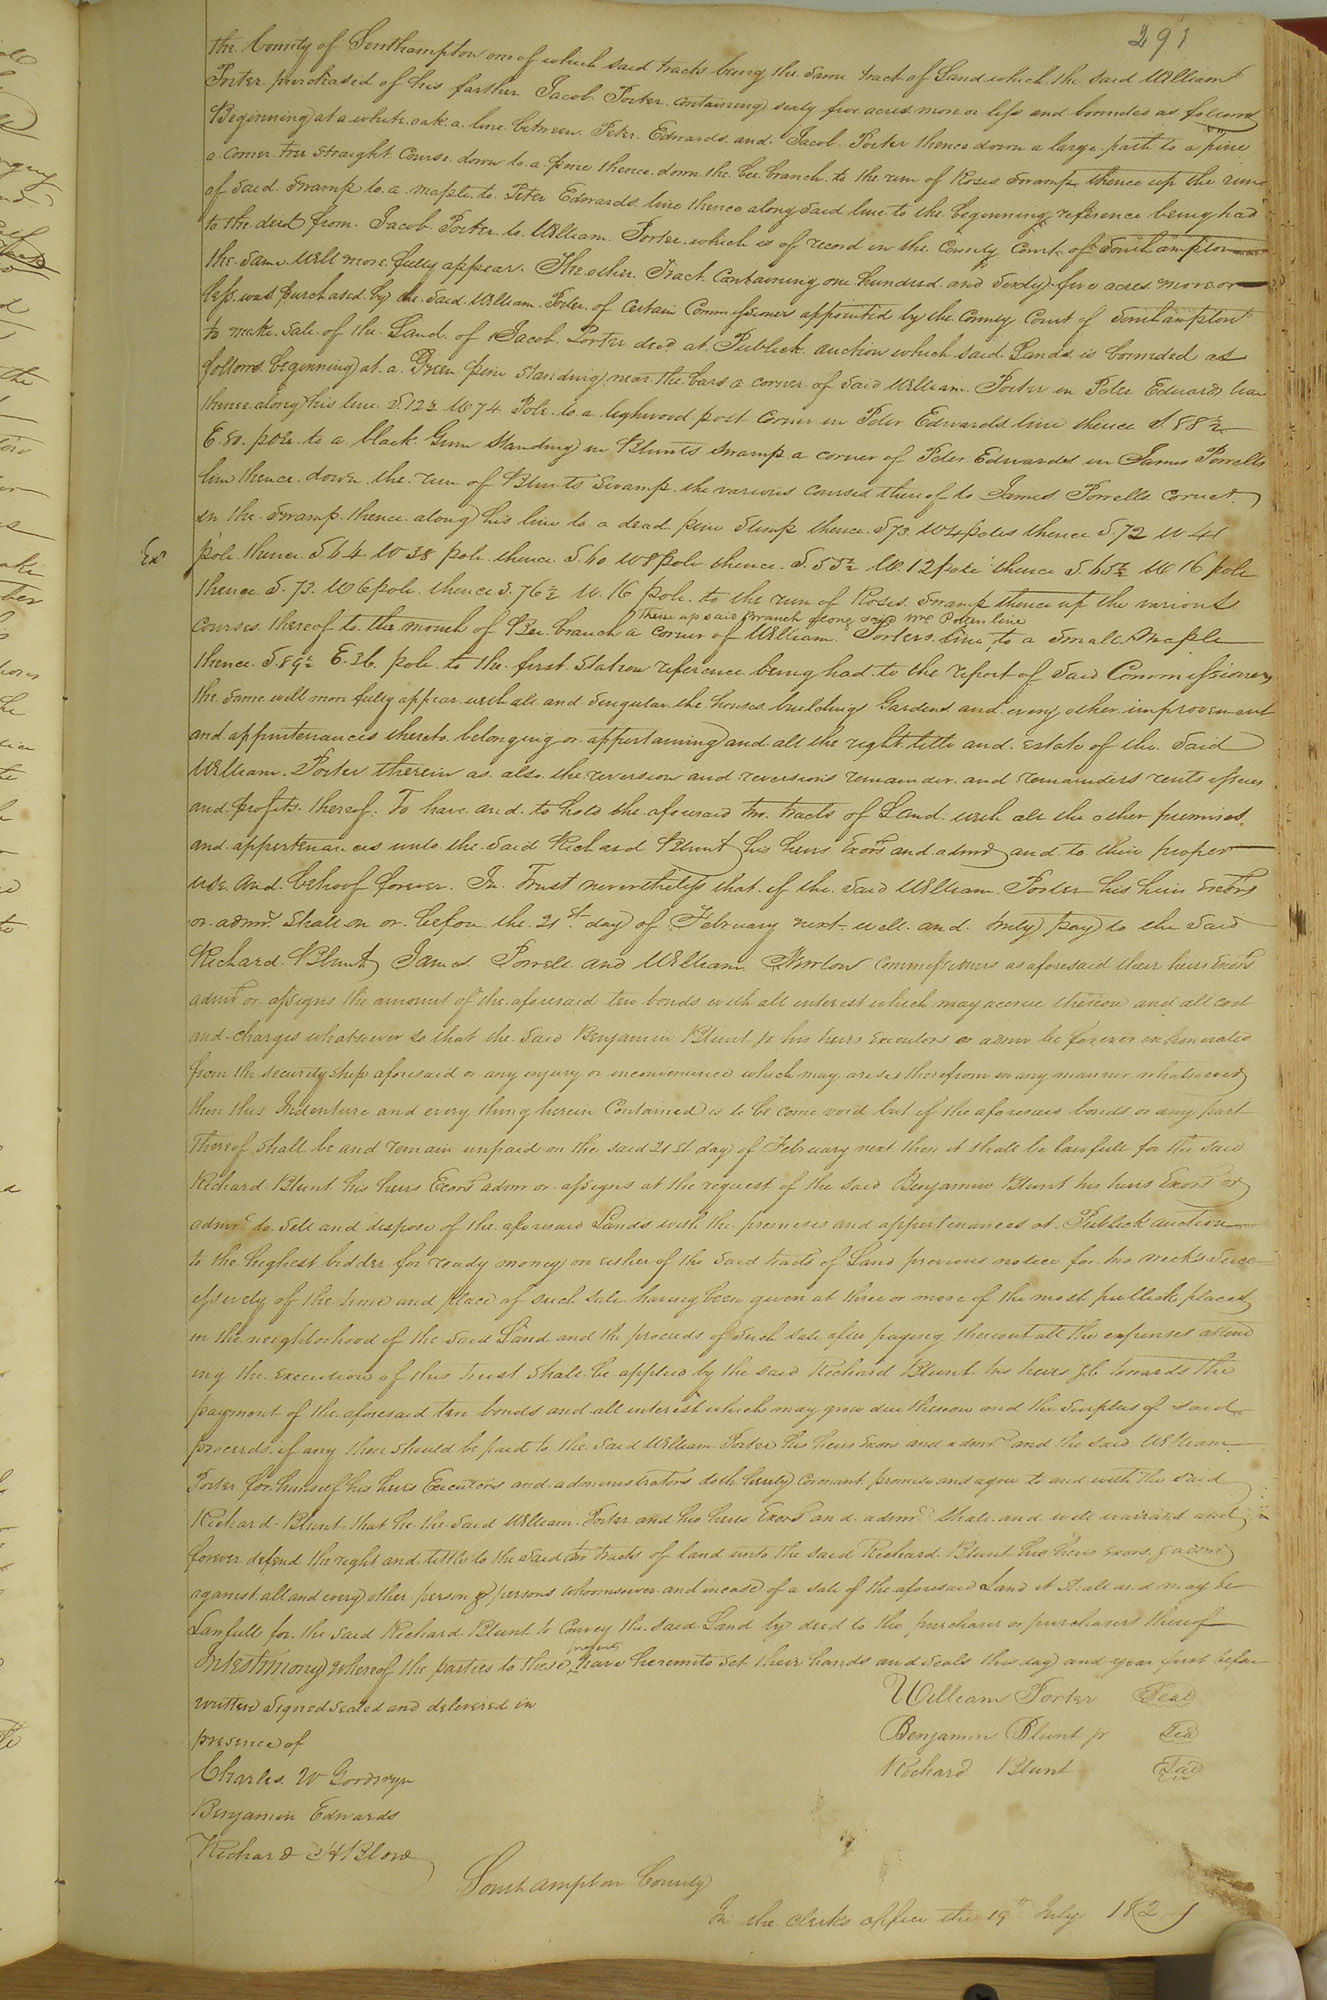 291
the County of Southampton one of which said tracts being the same tract of Land which the said William
Porter purchased of his farther Jacob Porter containing sixty five acres more or less and bounded as follows
Beginning at a white oak a line between Peter Edwards and Jacob Porter thence down a large path to a pine
a corner tree straight Course down to a pine thence down the bee branch to the run of Roses swamp thence up the run
of said swamp to a maple to Peter Edwards line thence along said line to the beginning reference being had
to the deed from Jacob Porter to William Porter which is of record in the County Court of Southampton
the same will more fully appear. The other Tract containing one hundred and Sixty five acres more or
less was purchased by the said William Porter of certain Commissioners appointed by the County Court of Southampton
to make sale of the Land of Jacob Porter decd at Publick auction which said Lands is bounded as
follows beginning at a Green pine standing near the bars a corner of said William Porter in Peter Edwards line
thence along his line S. 12½ W 74 Pole to a lightwood post corner in Peter Edwards line thence S 88½
E. 80. pole to a black Gum standing in Blunts swamp a corner of Peter Edwards in James Porrells
line thence down the run of Blunts Swamp the various courses thereof to James Porrells corner
in the swamp thence along his line to a dead pine stump thence S 73 W 4 poles thence S. 72 W 41
Ex
pole thence S 64 W 38 pole thence S. 60 W 8 pole thence S. 55½ W. 12 pole thence S. 65½ W 16 pole
thence S. 73. W 6 pole thence S. 76½ W. 16 pole to the run of Roses Swamp thence up the various
thence up said branch along said Wm Porters line
courses thereof to the mouth of Bee branch a corner of William Porters line, to a small maple
thence S 89½ E. 36. pole to the first Station reference being had to the report of said Commissioners
the same will more fully appear with all and singular the houses buildings Gardens and every other improvement
and appurtenances thereto belonging or appertaining and all the right title and estate of the said
William Porter therein as also the reversion and reversions remainder and remainders rents issues
and profits thereof. To have and to hold the aforesaid two tracts of Land with all the other premises
and appertenances unto the said Richard Blunt his heirs Exors and admrs and to their proper
use and behoof forever. In Trust nevertheless that if the said William Porter his heirs exors
or admrs. shall on or before the 21st day of February next well and truly pay to the said
Richard Blunt, James Porrell and William Newton commissioners as aforesaid their heirs Exors
admrs or assigns the amount of the aforesaid two bonds with all interest which may accrue thereon and all cost
and charges whatsoever so that the said Benjamin Blunt jr his heirs executors or admr be forever exhonerated
from the securityship aforesaid or any injury or inconvenience which may arise therefrom in any manner whatsoever
then this Indenture and every thing herein Contained is to be come void but if the aforesaid bonds or any part
thereof shall be and remain unpaid on the said 21st day of February next then it shall be lawfull for the said
Richard Blunt his heirs Exors admr or assigns at the request of the said Benjamin Blunt his heirs Exors or
admrs to sell and dispose of the aforesaid Lands with the premises and appertenances at Publick auction
to the highest bidder for ready money on either of the said tracts of Land previous notice for two weeks succe
essively of the time and place of such sale having been given at three or more of the most publick places
in the neighborhood of the said Land and the proceeds of such sale after paying thereout all the expenses attend
ing the execution of this trust shall be applied by the said Richard Blunt his heirs &c towards the
payment of the aforesaid two bonds and all interest which may grow due thereon and the surplus of said
proceeds if any there should be paid to the said William Porter his heirs Exors and admrs and the said William
Porter for himself his heirs Executors and administrators doth hereby covenant promise and agree to and with the said
Richard Blunt that he the said William Porter and his heirs Exors and admrs shall and will warrant and
forever defend the right and tittle to the said two tracts of land unto the said Richard Blunt his heirs exors. & admrs
against all and every other person & persons whomsoever and in case of a sale of the aforesaid Land it shall and may be
Lawfull for the said Richard Blunt to Convey the said Land by deed to the purchaser or purchasers thereof
presents
In testimony whereof the parties to these have hereunto set their hands and seals this day and year first before
written Signed sealed and delivered in
presence of
William Porter Seal
Benjamin Blunt jr Seal
Richard Blunt Seal
Charles W Goodwyn
Benjamin Edwards
Richard H Blow
Southampton County
In the clerks office the 19th July 182